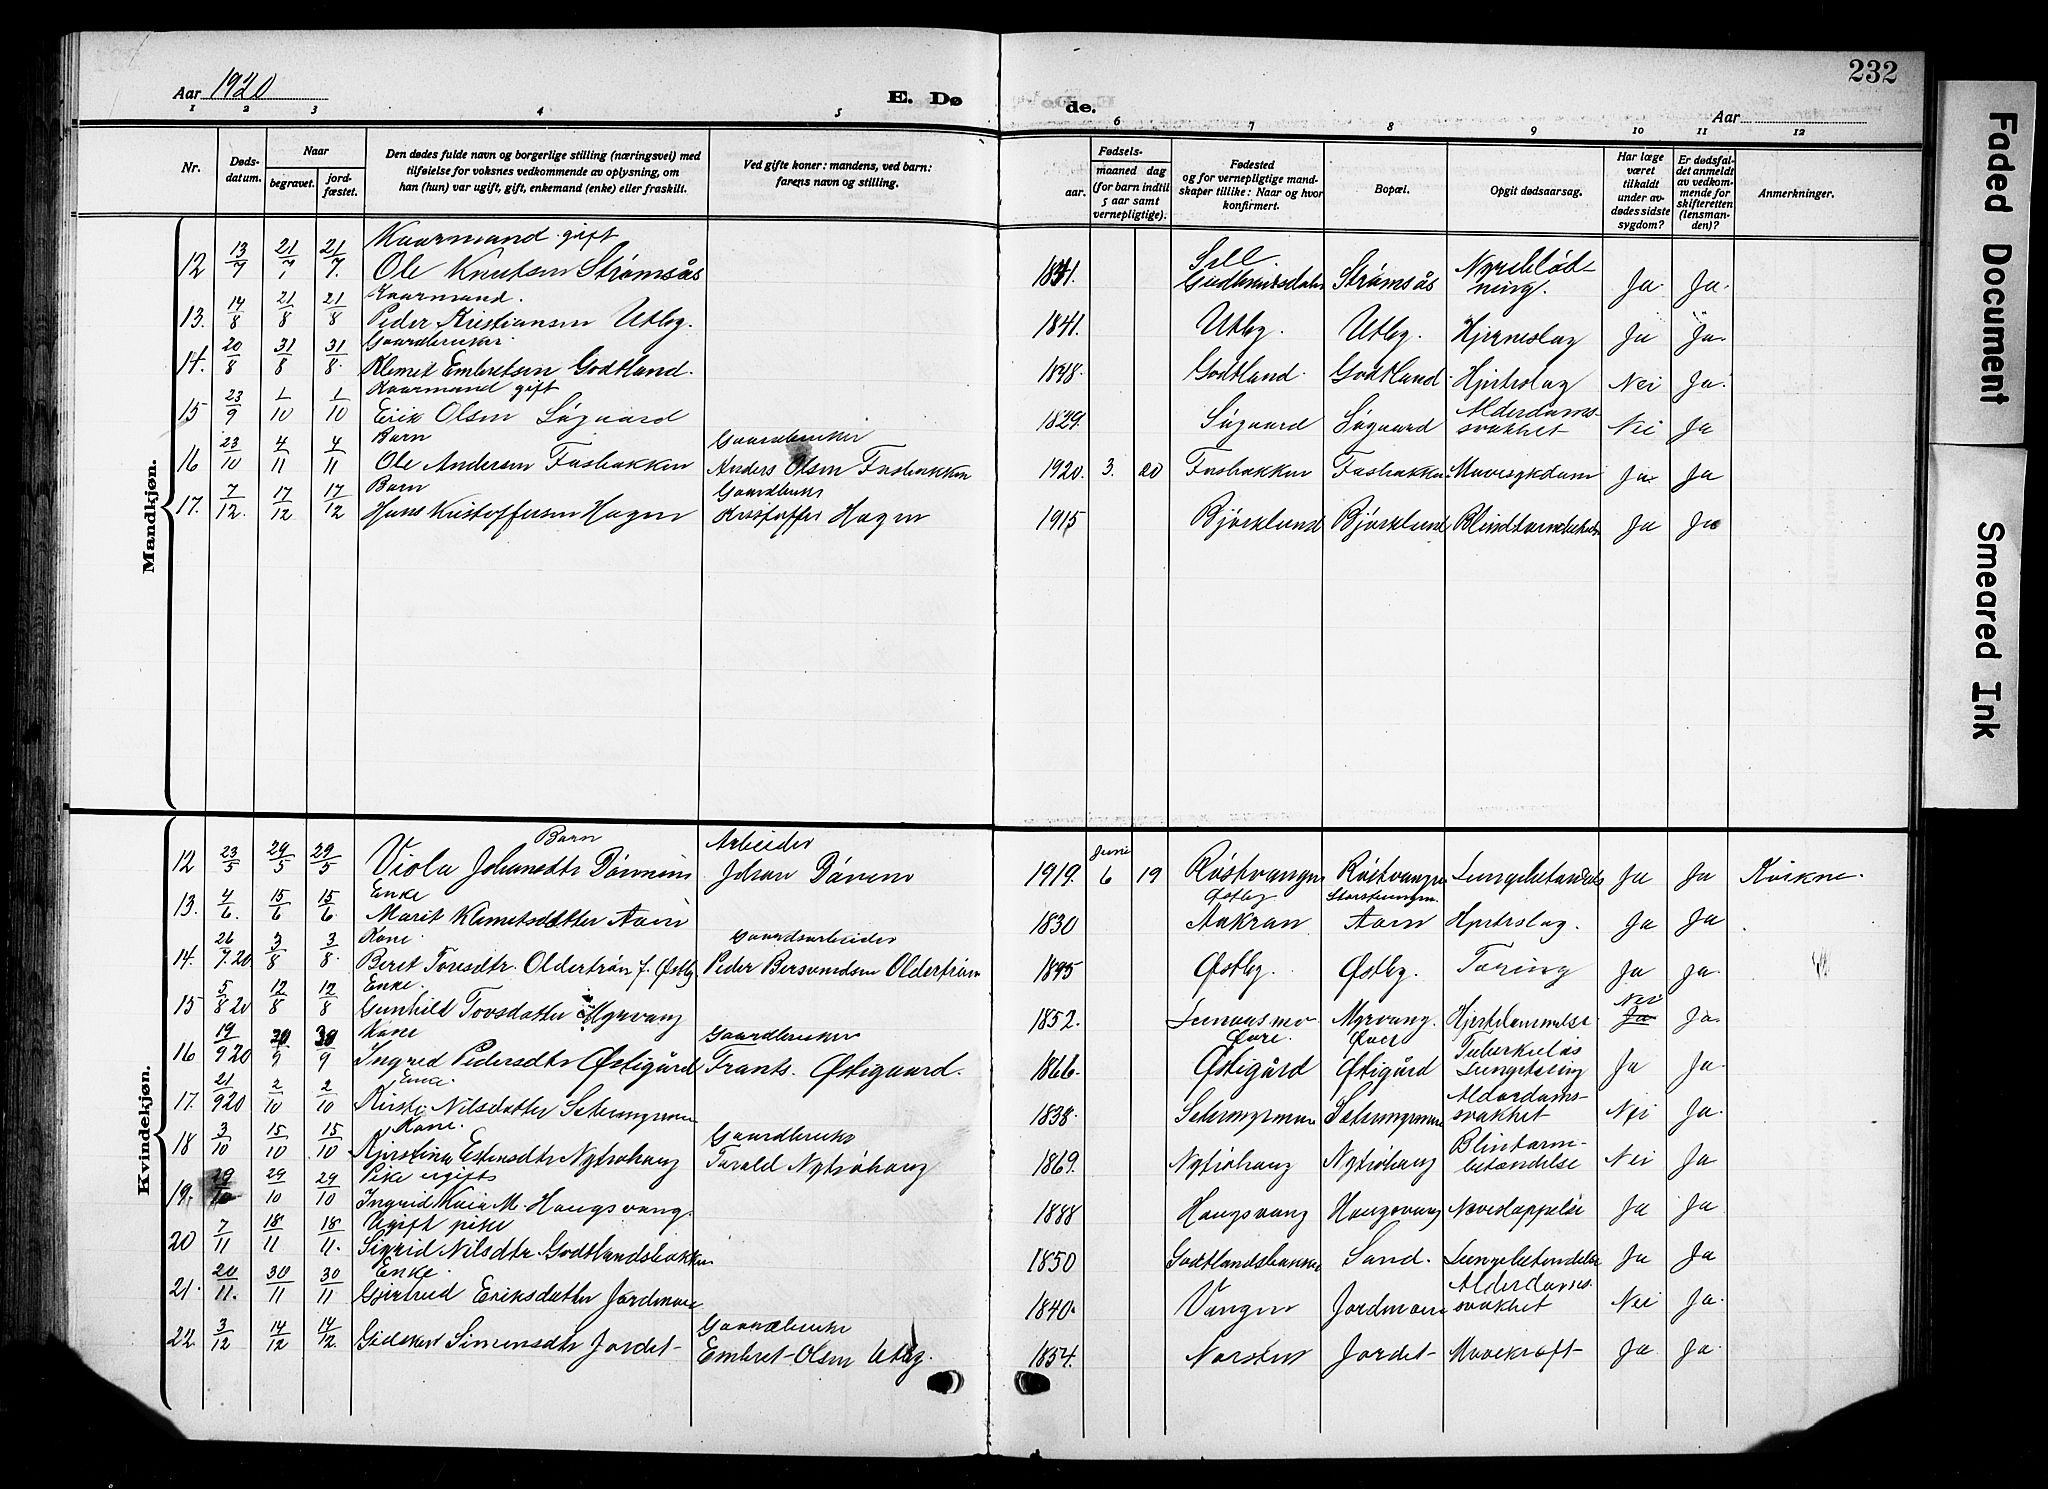 232
Aar 1920
E. Dø de.
Aar
1 2 3 4 5 6 7 8 9 10 11 12
Nr.
Dødsdatum.
Naar
begravet.
jordfæstet.
Den dødes fulde navn og borgerlige stilling (næringsvei) med
tilføielse for voksnes vedkommende av oplysning, om
han (hun) var ugift, gift, enkemand (enke) eller fraskilt.
Ved gifte koner: mandens, ved barn:
farens navn og stilling.
Fødsels-
aar.
maaned dag
(for barn indtil
5 aar samt
vernepligtige).
Fødested
og for vernepligtige mand-
skaper tillike: Naar og hvor
konfirmert.
Bopæl.
Opgit dødsaarsag.
Har læge
været
tilkaldt
under av-
dødes sidste
sygdom?
Er dødsfal-
det anmeldt
av vedkom-
mende for
skifteretten
(lensman-
den)?
Anmerkninger.
Mandkjøn.
Kaarmand gift
12 13/7 21/7 21/7. Ole Knutsen Strømsås Sell Gudbrandsdalen Strømsås Nyreblødning. Ja. Ja.
Kaarmand.
13. 14/8 21/8 21/8 Peder Kristiansen Utby. 1841. Utby. Utby. Hjerneslag Ja Ja.
Gaardbruker.
14. 20/8 31/8 31/8. Klemet Embretsen Godtland. 1848. Godtland. Godtland. Hjerteslag Nei Ja.
Kaarmand gift
15 23/9 1/10 1/10 Erik Olsen Søgaard 1829. Søgaard Søgaard Alderdomssvakhet Nei Ja
Barn Gaardbruker
16 23/10 4/11 4/11 Ole Andersen Fasbakken Anders Olsen Fasbakken 1920. 3. 20 Fasbakken Fasbakken Mavesykdom Ja Ja
Barn Gaardbruker
17. 7/12. 17/12 17/12 Hans Kristoffersen Hagen Kristoffer Hagen 1915 Bjørklund Bjørklund Ja Ja
Kvindekjøn.
Barn Arbeider Juni
12 23/5 29/5 29/5 Viola Johansdtr Johan 1919. 6 19 Røstvangen Røstvangen Lungebetændelse Ja Ja Kvikne.
Enke Østby
13. 4/6. 15/6 15/6. Marit Klemetsdatter Aaen 1830 Aakran Aaen Hjerteslag. Ja Ja
Kone. Gaardsarbeider
14. 26/7.20 3/8 3/8. Beret Toresdtr. Oldertrøn f. Østby Peder Bersvendsen Oldertrøen 1895 Østby. Østby. Tæring Ja Ja.
Enke. Nei
15 5/8 20 12/8 12/8 Gunhild Tovsdatter Myrvang 1852. Lunaasmo Myrvang. Hjertelammelse Ja Ja.
Kone Gaardbruker Øvre. Øvre
16 19/9 20 30/9 30/9 Ingred Pedersdtr Østigård Frants. Østigaard. 1866. Østigård Østigård Tuberkuløs Lungetæring Ja Ja.
Enke.
17. 21/9 20 2/10 2/10 Kirsti Nilsdatter 1838. Alderdomssvakhet Nei Ja.
Kone. Gaardbruker
18 3/10 15/10 15/10 Kjerstina Estensdtr Nytrøhaug Tarald Nytrøhaug 1869. Nytrøhaug Nytrøhaug Blintarmbetændelse Nei Ja
Pike ugift
19. 29/10 29/10 29/10 Ingrid Kaia M. Haugsvang. 1888 Haugsvang Haugsvang Ja Ja
Ugift pike
20 7/11 18/11 18/11. Sigrid Nilsdtr. Godtlandsbakken 1850 Godtlandsbakken Sand. Lungebetændelse Ja Ja
Enke.
21. 20/11. 30/11 30/11 Gjertrud Eriksdatter Jordmoen 1840. Vangen Jordmoen Alderdomssvakhet Nei Ja.
Gaardbruker
22 3/12 14/12 14/12 Simensdtr Jordet Embret Olsen Utby. 1854. Jordet Mavekræft Ja. Ja.
Faded Document
Smeared Ink